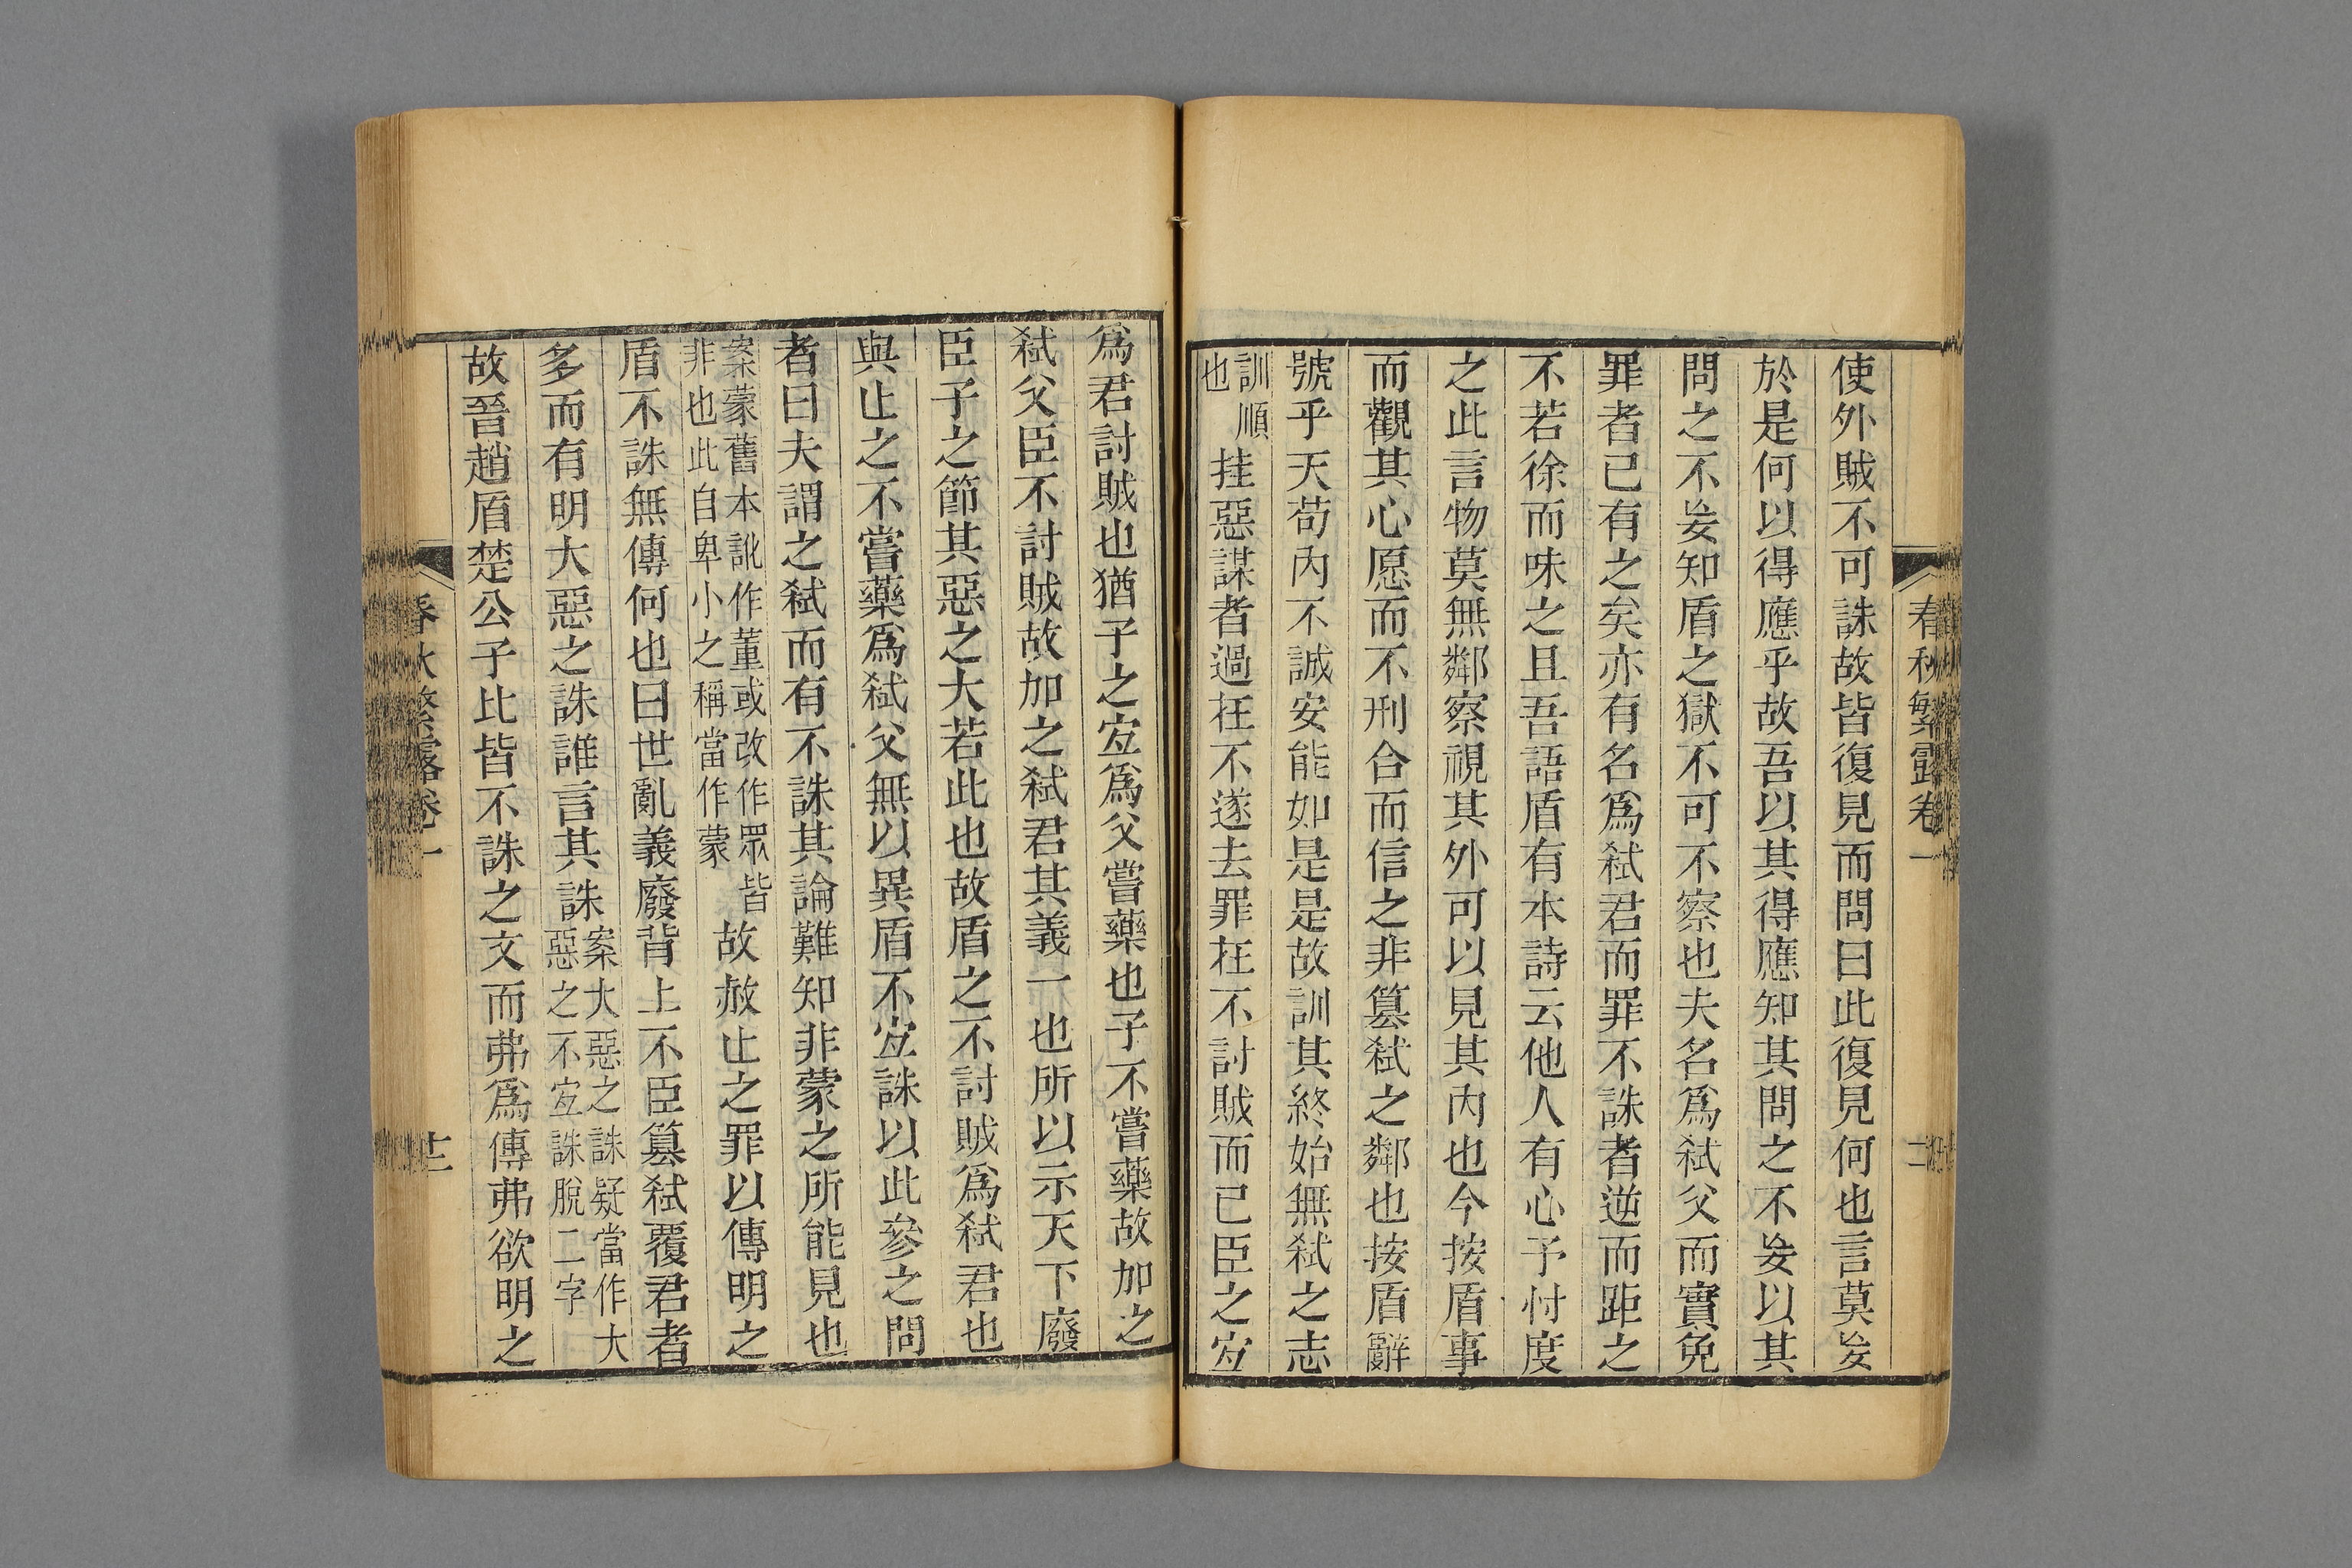 春秋繁露卷一
使外賊不可誅故皆復見而問曰此復見何也言莫妄
於是何以得應乎故吾以其得應知其問之不妄以其
問之不妄知盾之獄不可不察也夫名爲弑父而實免
罪者已有之矣亦有名爲弑君而罪不誅者逆而距之
不若徐而味之且吾語盾有本詩云他人有心予忖度
之此言物莫無鄰察視其外可以見其內也今按盾事
而觀其心愿而不刑合而信之非篡弑之鄰也按盾辭
號乎天苟內不誠安能如是是故訓其終始無弑之志
訓順
也
挂惡謀者過在不遂去罪在不討賊而已臣之宐
爲君討賊也猶子之宐爲父嘗藥也子不嘗藥故加之
弑父臣不討賊故加之弑君其義一也所以示天下廢
臣子之節其惡之大若此也故盾之不討賊爲弑君也
與止之不嘗藥爲弑父無以異盾不宐誅以此參之問
者曰夫謂之弑而有不誅其論難知非蒙之所能見也
案蒙舊本訛作董或改作眾皆
非也此自卑小之稱當作蒙
故赦止之罪以傳明之
盾不誅無傳何也曰世亂義廢背上不臣篡弑覆君者
多而有明大惡之誅誰言其誅
案大惡之誅疑當作大
惡之不宐誅脫二字
故晉趙盾楚公子比皆不誅之文而弗爲傳弗欲明之
春秋繁露卷一